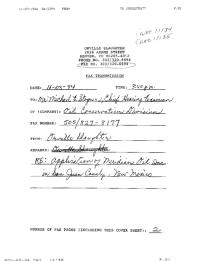 TO 15058278177 P.01
Case 11134
Case 11135
ORVILLE SLAUGHTER
DENVER, CO 80207
PHONE NO. 303/320-6894
FAX NO. 303/320-6894
FAX TRANSMISSION
DATE: 11-03-94 TIME: 3:00 pm
TO: Mr. Michael E. Stogner, Chief Hearing Examiner
OF (COMPANY): Oil Conservation Division
FAX NUMBER: 505/827-8177
FROM: Orville Slaughter
REMARKS:
RE: Application of Meridian Oil Inc
in San Juan County, New Mexico
NUMBER OF FAX PAGES (INCLUDING THIS COVER SHEET): 2
P.01